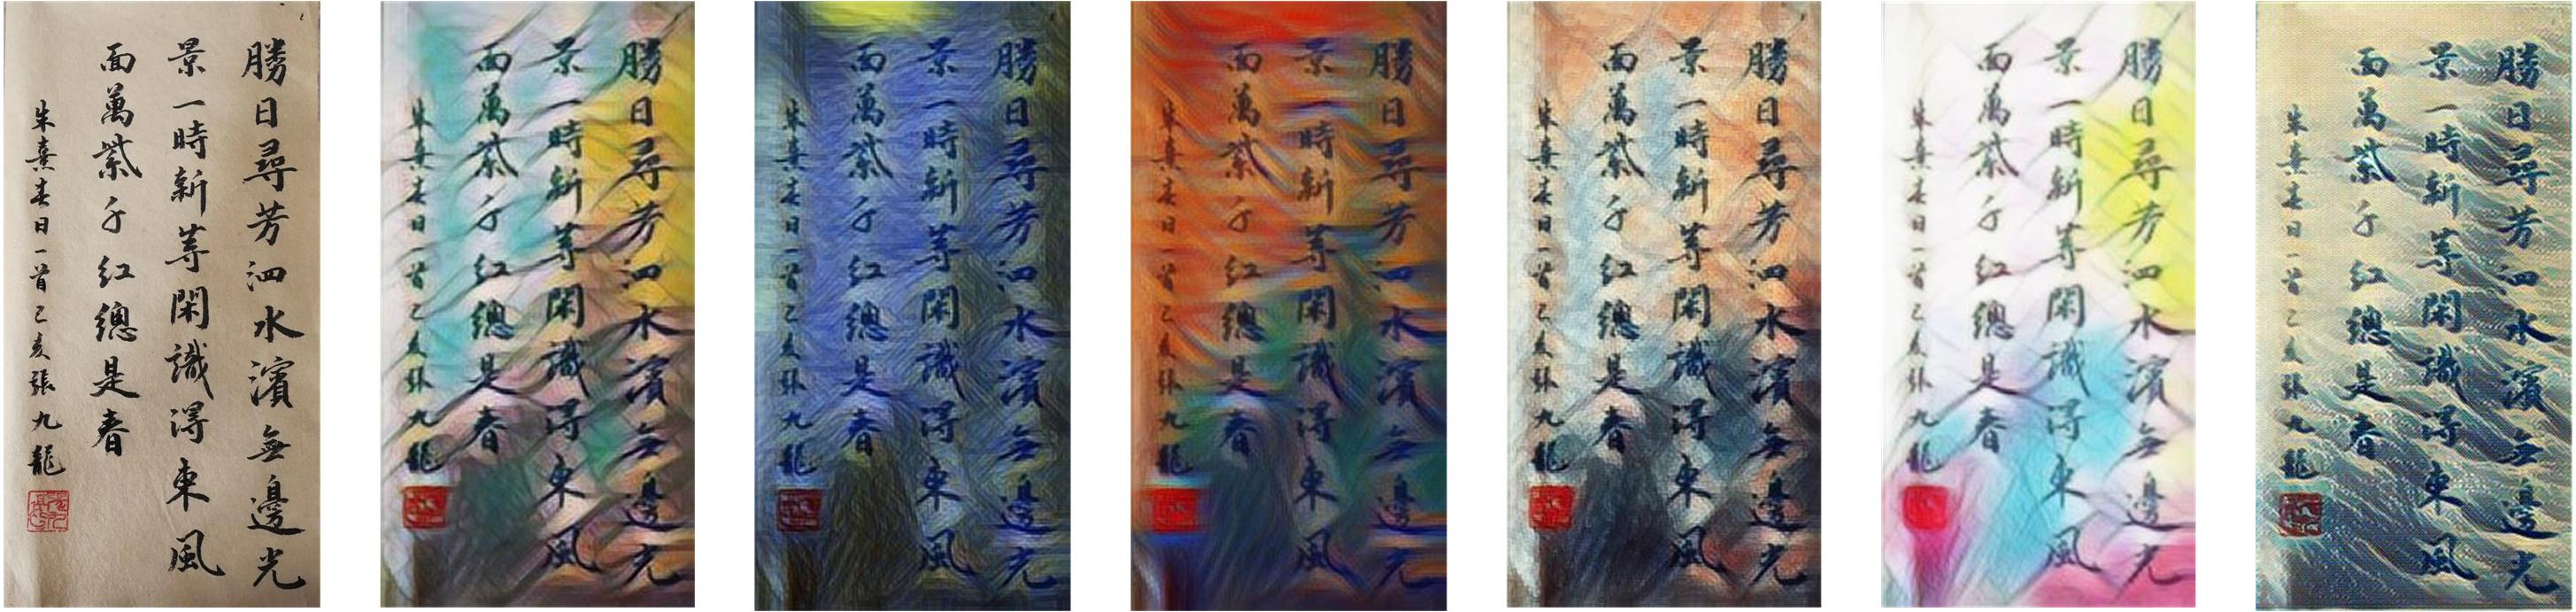 勝日尋芳泗水濱無邊光
景一時新等閑識得東風
面萬紫千紅總是春
朱熹春日一首己亥張九龍
勝日尋芳泗水濱無邊光
景一時新等閑識得東風
面萬紫千紅總是春
朱熹春日一首己亥張九龍
勝日尋芳泗水濱無邊光
景一時新等閑識得東風
面萬紫千紅總是春
朱熹春日一首己亥張九龍
勝日尋芳泗水濱無邊光
景一時新等閑識得東風
面萬紫千紅總是春
朱熹春日一首己亥張九龍
勝日尋芳泗水濱無邊光
景一時新等閑識得東風
面萬紫千紅總是春
朱熹春日一首己亥張九龍
勝日尋芳泗水濱無邊光
景一時新等閑識得東風
面萬紫千紅總是春
朱熹春日一首己亥張九龍
勝日尋芳泗水濱無邊光
景一時新等閑識得東風
面萬紫千紅總是春
朱熹春日一首己亥張九龍